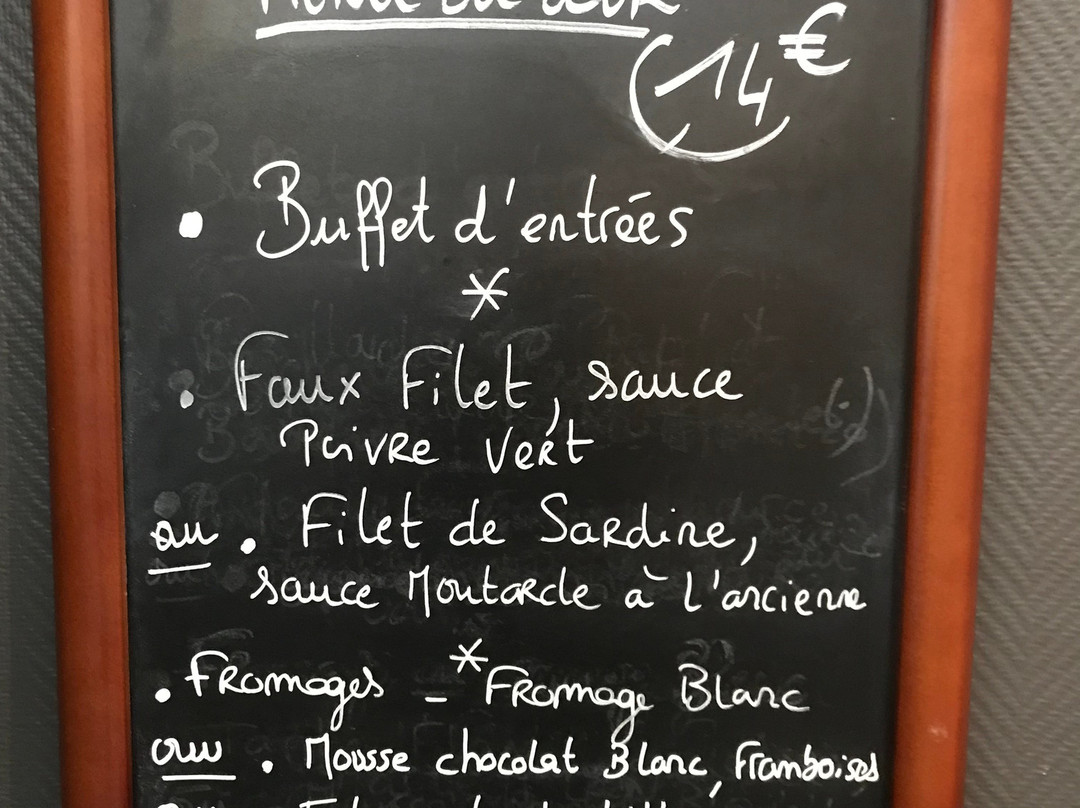 14€
• Buffet d'entrées
*
• Faux Filet, sauce
Poivre Vert
ou • Filet de Sardine,
sauce Moutarde à l'ancienne
*
• Fromages - Fromage Blanc
ou • Mousse chocolat Blanc, Framboises